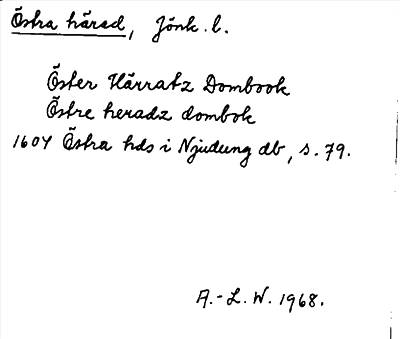 Östra härad, Jönk. l.
Öster Härratz Dombook
Östre heradz dombok
1604 Östra hds i Njudung db, s. 79.
A.-L. W. 1968.